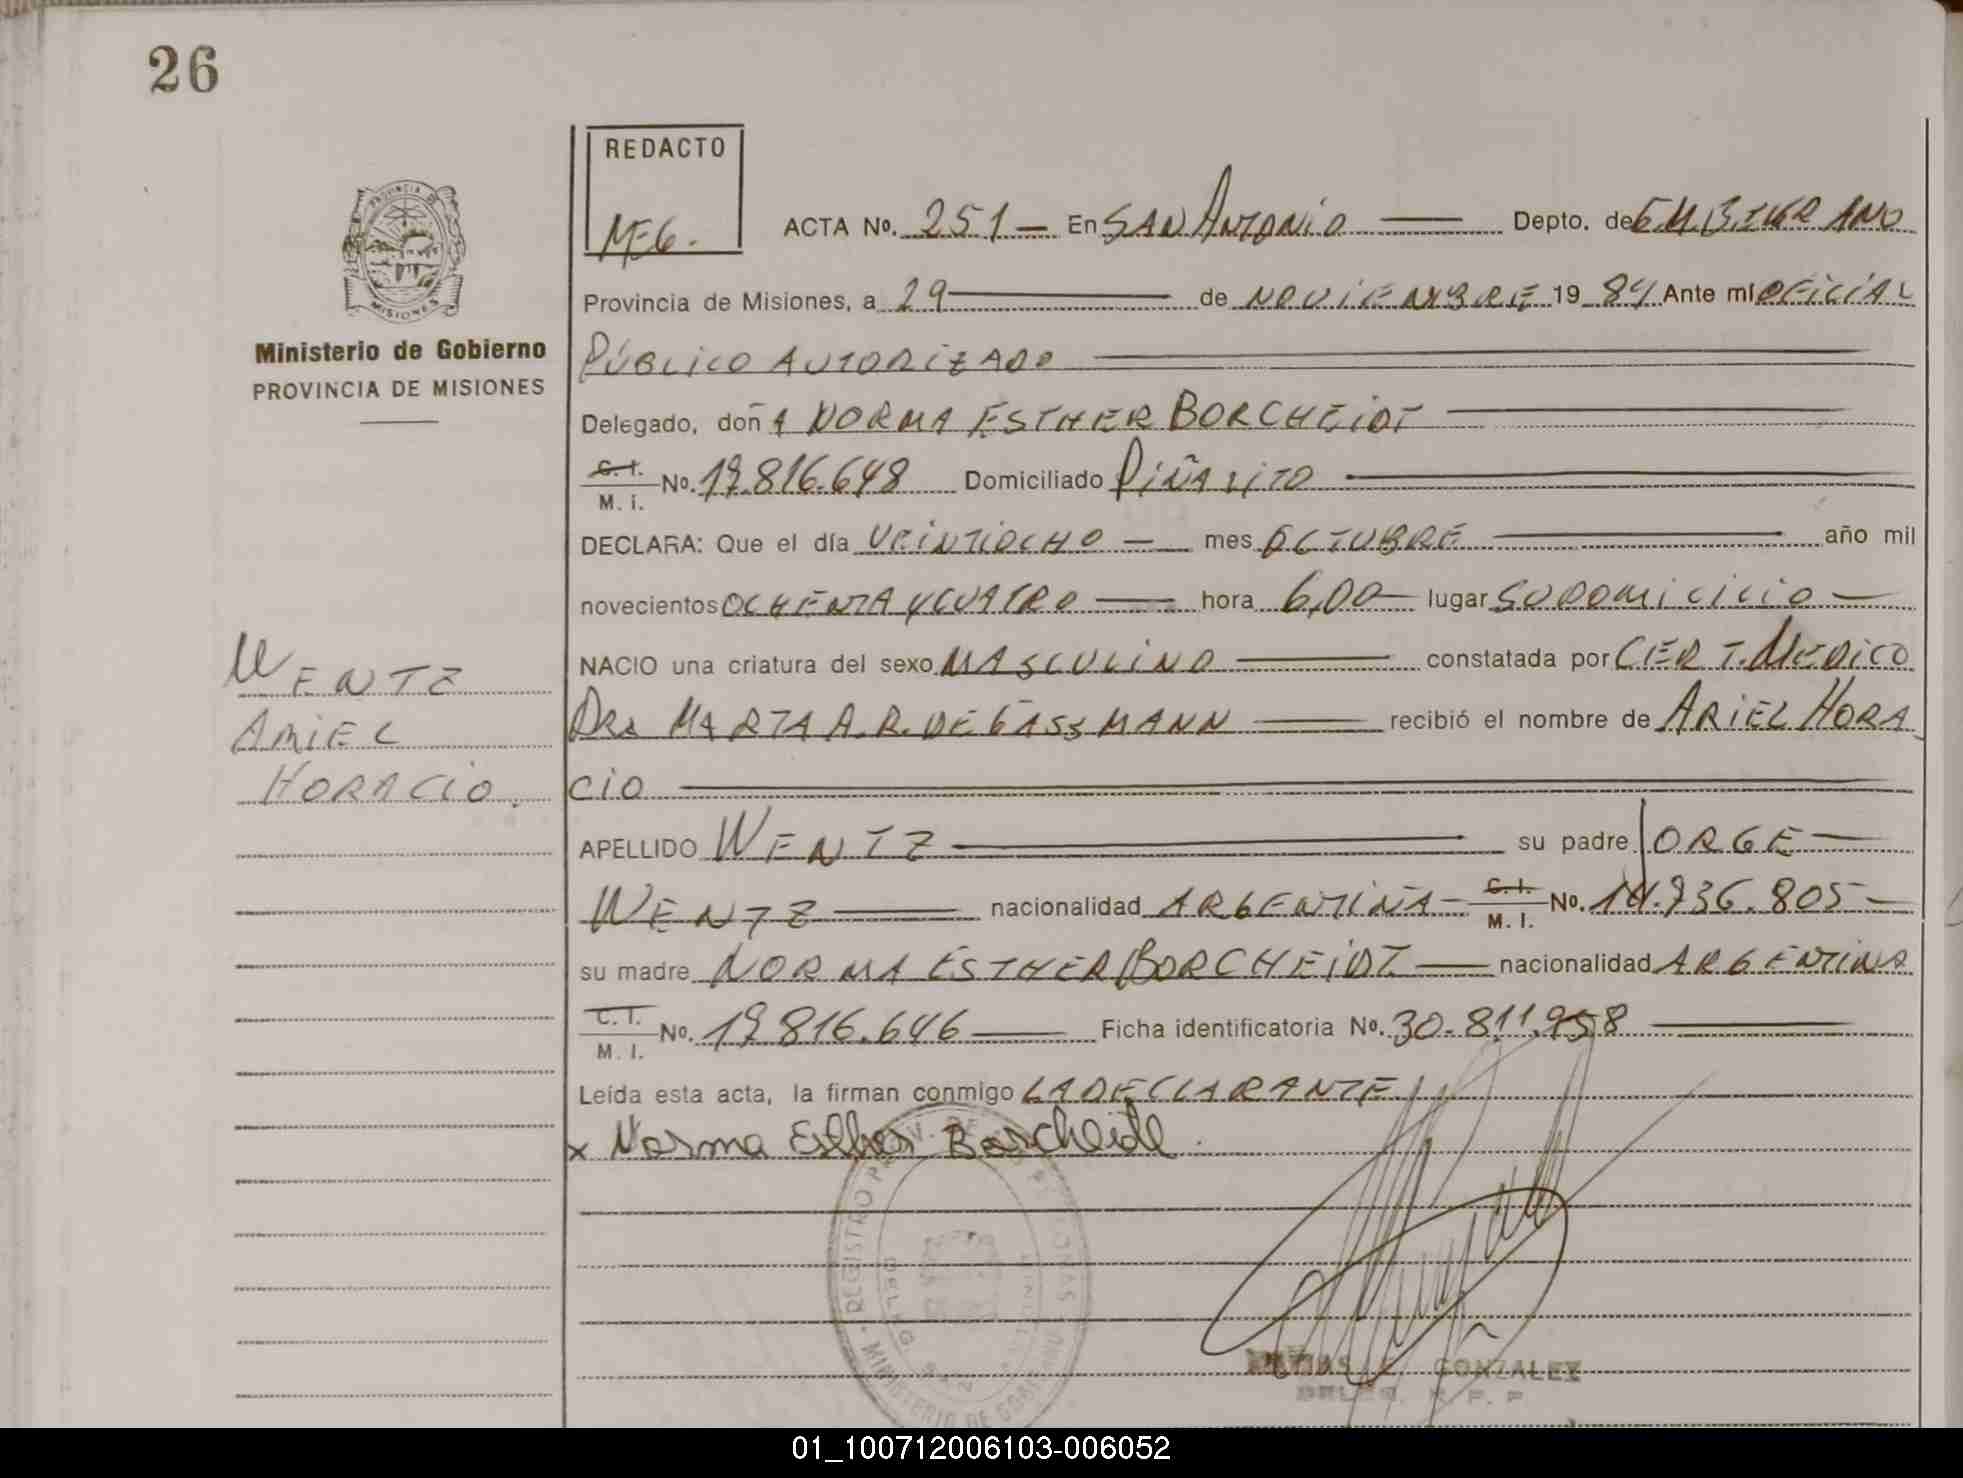 26
REDACTO
MEG.
ACTA Nº. 251 — En SAN ANTONIO — Depto. de GM. BELGRANO
Provincia de Misiones, a 29 — de NOVIEMBRE 19 84 Ante mí OFICIAL
PÚBLICO AUTORIZADO
Ministerio de Gobierno
PROVINCIA DE MISIONES
Delegado, doñA NORMA ESTHER BORCHEIDT
C. I. / M. I. Nº. 19.816.648 Domiciliado PIÑALITO
DECLARA: Que el día VEINTIOCHO — mes OCTUBRE — año mil
novecientos OCHENTA Y CUATRO — hora 6,00 — lugar SU DOMICILIO —
WENTZ
ARIEL
HORACIO.
NACIO una criatura del sexo MASCULINO — constatada por CERT. MEDICO
DRA MARTA A.R. DE GASSMANN — recibió el nombre de ARIEL HORA
CIO
APELLIDO WENTZ — su padre JORGE —
WENTZ — nacionalidad ARGENTINA — C. I. / M. I. Nº. 14.936.805 —
su madre NORMA ESTHER BORCHEIDT — nacionalidad ARGENTINA
C. I. / M. I. Nº. 19.816.646 — Ficha identificatoria Nº. 30.811.958 —
Leída esta acta, la firman conmigo LA DECLARANTE
x Norma Esther Borcheidt.
REGISTRO PROV. DE LAS PERSONAS
MINISTERIO DE GOBIERNO
GONZALEZ
MISIONES
PROVINCIA DE
01_100712006103-006052